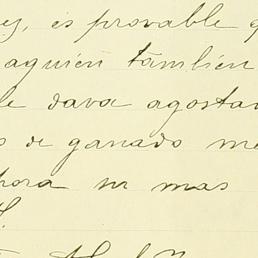 y, es provable q
aquien tâmbien
le dava agosta
s de ganado me
hora ni mas